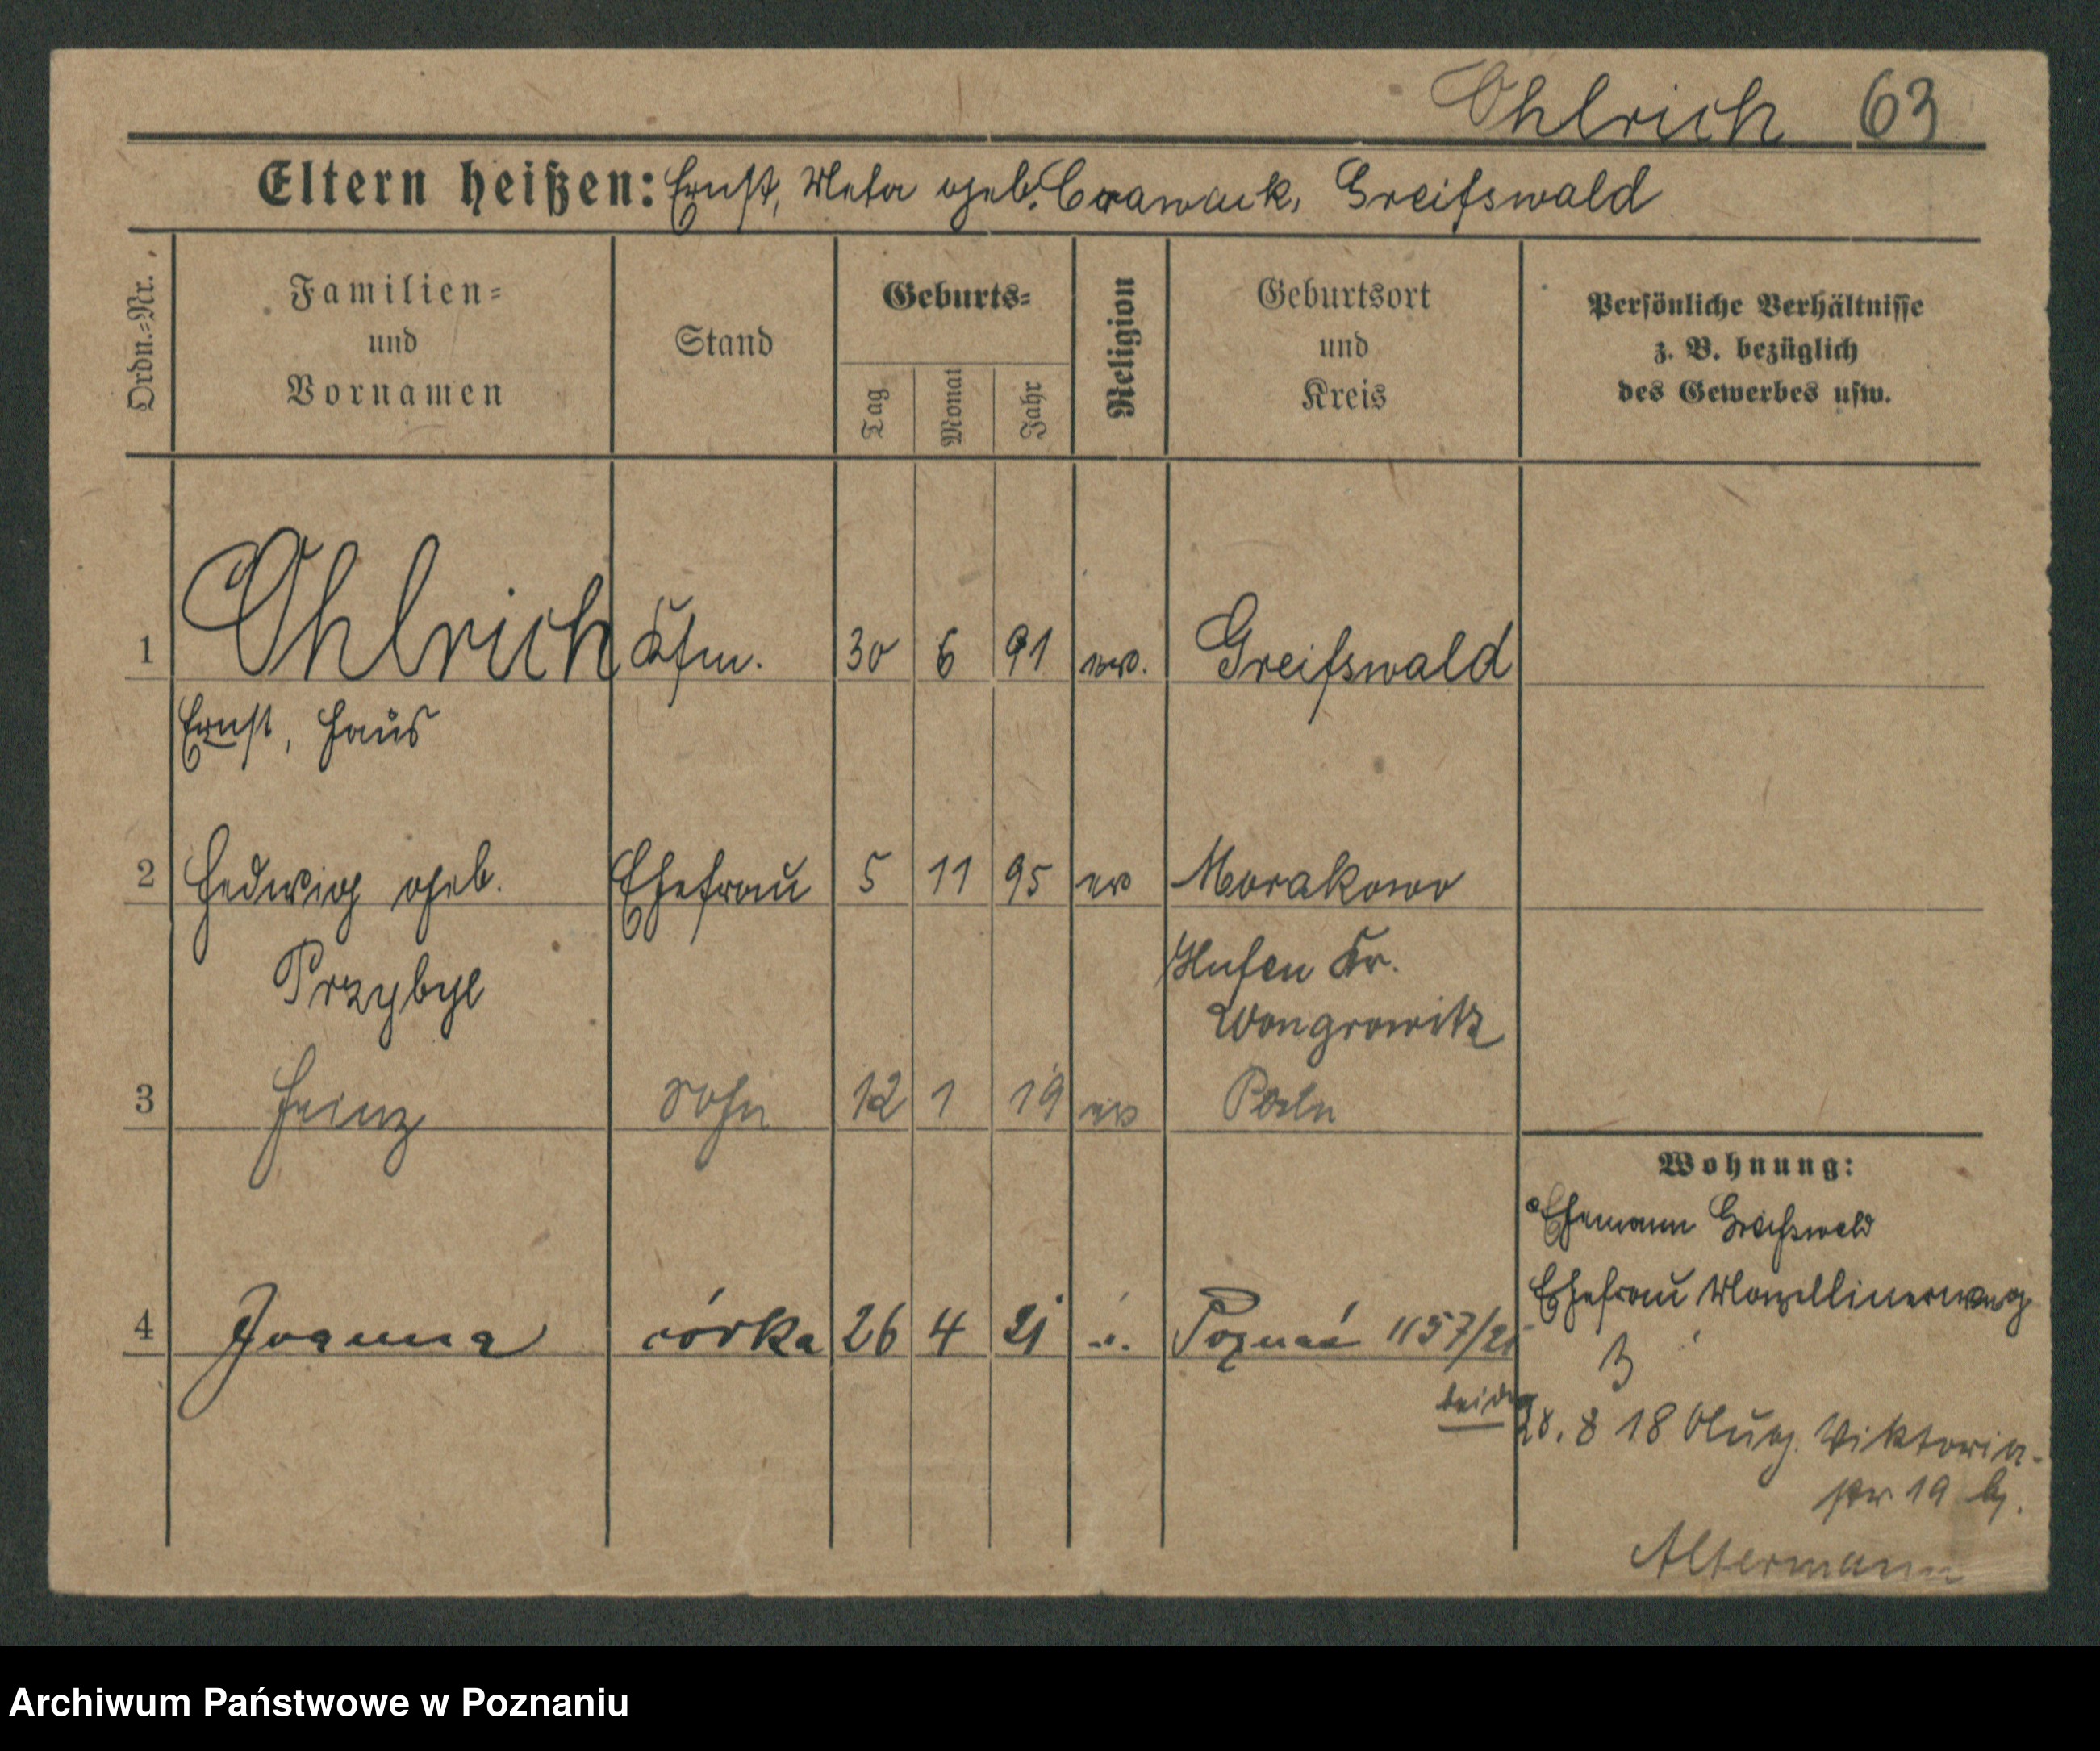 Ohlrich 63
Eltern heißen: Ernst, Meta geb. Crawack, Greifswald
Ordn.-Nr.
Familien-
und
Vornamen
Stand
Geburts-
Tag
Monat
Jahr
Religion
Geburtsort
und
Kreis
Persönliche Verhältnisse
z. B. bezüglich
des Gewerbes usw.
1 Ohlrich Kfm. 30 6 91 ev. Greifswald
Ernst, Hans
2 Hedwig geb. Ehefrau 5 11 95 ev Morakowo
Przybyl
Hufen Kr.
Wongrowitz
3 Heinz Sohn 12 1 19 ev Posen
Wohnung:
Ehemann Greifswald
Ehefrau
3
4 Joanna córka 26 4 21 Poznań 1157/21
beide
28. 8 18 Aug. Viktoria-
str 19 b.
Altermann
Archiwum Państwowe w Poznaniu